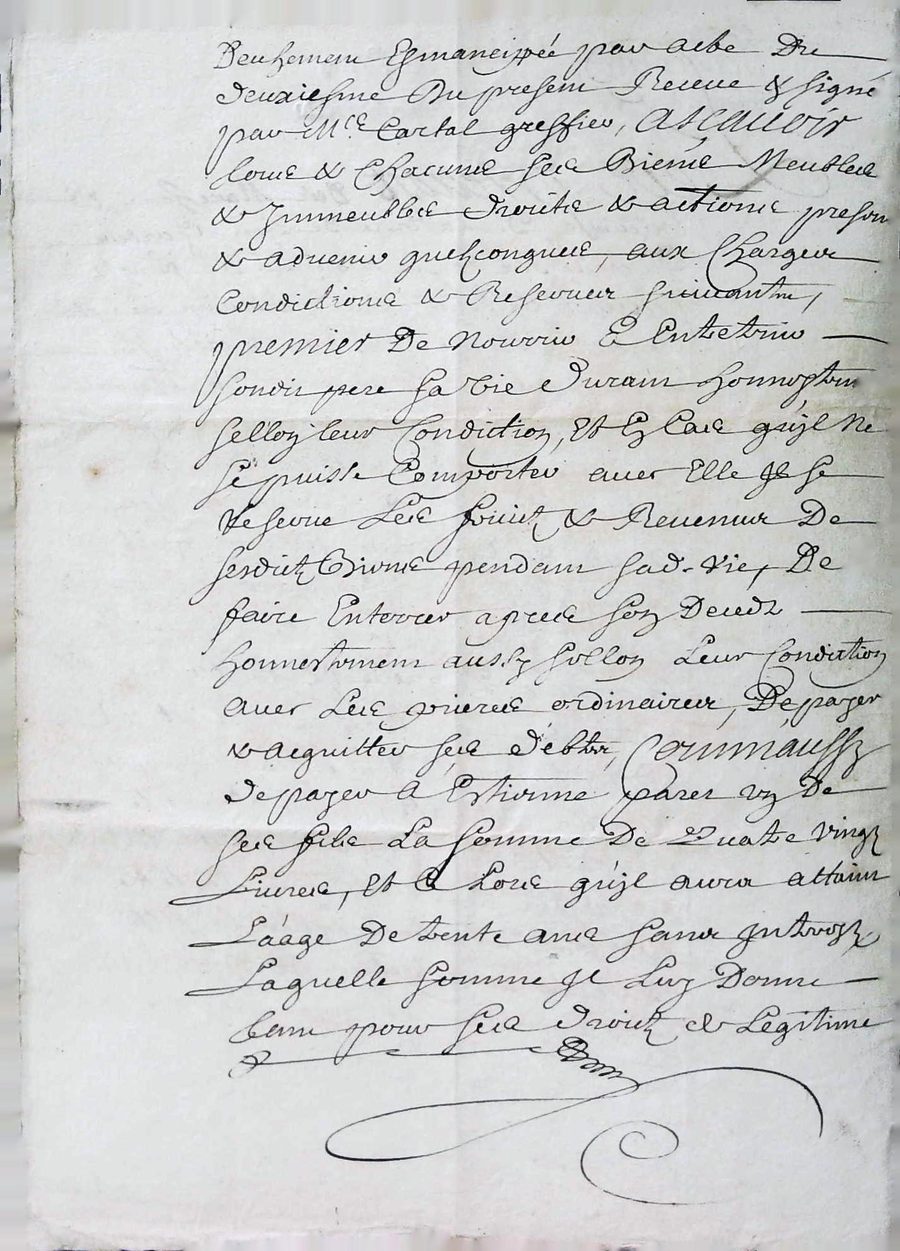 Deuhemen Esmancipée par acte Du
deuxiesme Du present Receue & signé
par Mre Cartal greffier, Ascauoir
tous & Chacuns ses Biens Meubles
& Immeubles droits & actions presen
& aduenir quelconques, aux Charges
Condictions & Reserues suiuantes,
premier De Nourrir & Entretenir
sondit pere sa vie durant honnestem
sellon leur Condiction, Et En Cas qu'il Ne
se puisse Comporter auec Elle Il se
Reserue Les fruicts & Reuenus De
sesdicts Biens pendant sad. vie, De
faire Enterrer apres son Deceds
honnestement aussy sellon Leur Condiction
auec Les prieres ordinaires, De payer
& acquitter ses debtes, Comm'aussy
de payer a Estienne un De
ses fils La somme De Quatre vingt
Liures, Et Lors qu'il aura attaint
L'aage De trente ans sans Intrest
Laquelle somme Il Luy Donne
tant pour ses droicts de Legitime